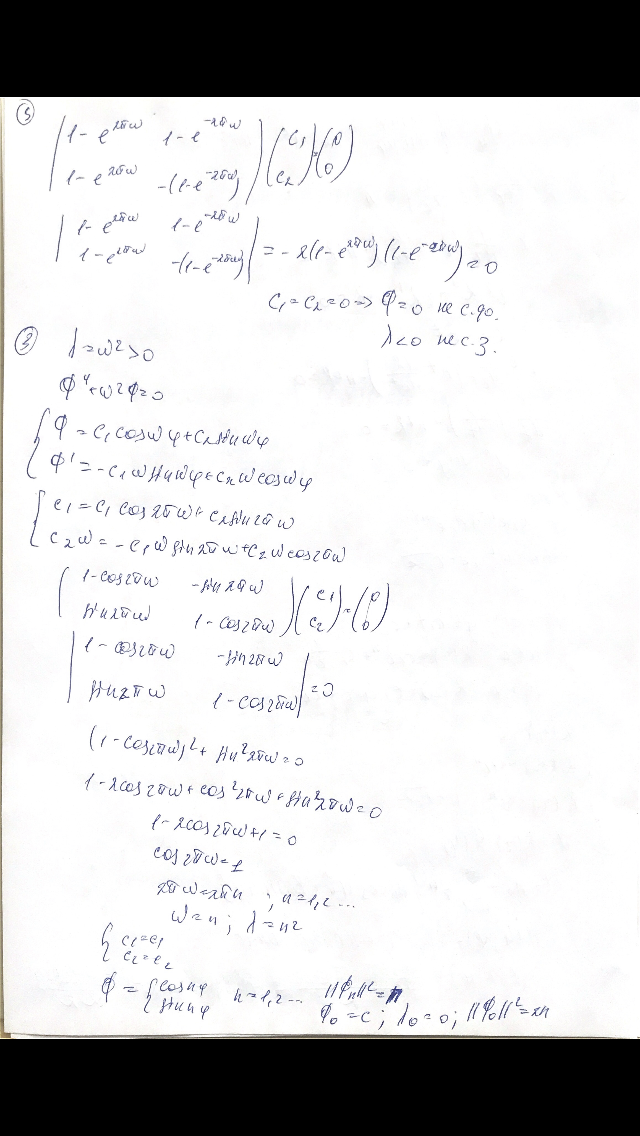 ③
| 1-e^{2πω}  1-e^{-2πω} | (c₁) = (0)
| 1-e^{2πω}  -(1-e^{-2πω}) ) (c₂) (0)
| 1-e^{2πω}  1-e^{-2πω} |
| 1-e^{2πω}  -(1-e^{-2πω}) | = -2(1-e^{2πω})(1-e^{-2πω}) = 0
c₁=c₂=0 => Φ=0 не с.ф.
λ<0 не с.з.
③ λ=ω²>0
Φ''+ω²Φ=0
{ Φ = c₁cosωφ+c₂sinωφ
{ Φ' = -c₁ωsinωφ+c₂ωcosωφ
{ c₁ = c₁cos2πω+c₂sin2πω
{ c₂ω = -c₁ωsin2πω+c₂ωcos2πω
( 1-cos2πω  -sin2πω ) (c₁) = (0)
( sin2πω  1-cos2πω ) (c₂) (0)
| 1-cos2πω  -sin2πω |
| sin2πω  1-cos2πω | =0
(1-cos2πω)²+sin²2πω=0
1-2cos2πω+cos²2πω+sin²2πω=0
1-2cos2πω+1=0
cos2πω=1
2πω=2πn ; n=1,2...
ω=n ; λ=n²
{ c₁=c₁
{ c₂=c₂
Φ = { cosnφ  n=1,2... ||Φₙ||²=π
{ sinnφ  Φ₀=c ; λ₀=0 ; ||Φ₀||²=2π